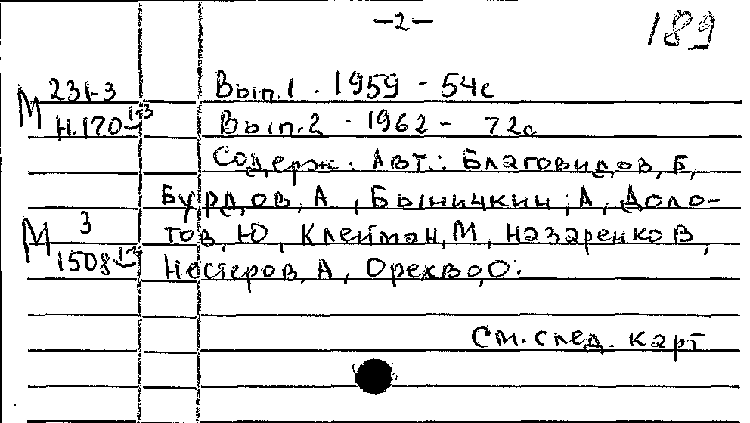 -2-
189
М 231-3
Н.170 1-3
Вып.1. 1959 - 54с
Вып.2 - 1962 - 72с
Содерж. Авт.: Благовидов, Б,
Бурдов, А., Быничкин, А, Доло-
тов, Ю, Клейман, М, Назаренко В,
Нестеров, А, Орехво, О.
М 3
1508 1-2
См. след. карт